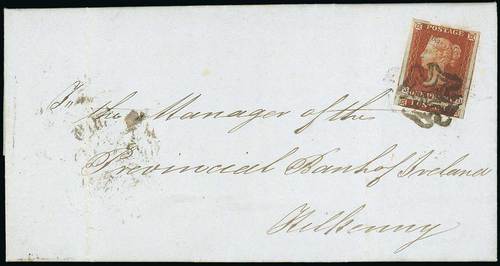 POSTAGE
ONE PENNY
To the Manager of the
Provincial Bank of Ireland
Kilkenny